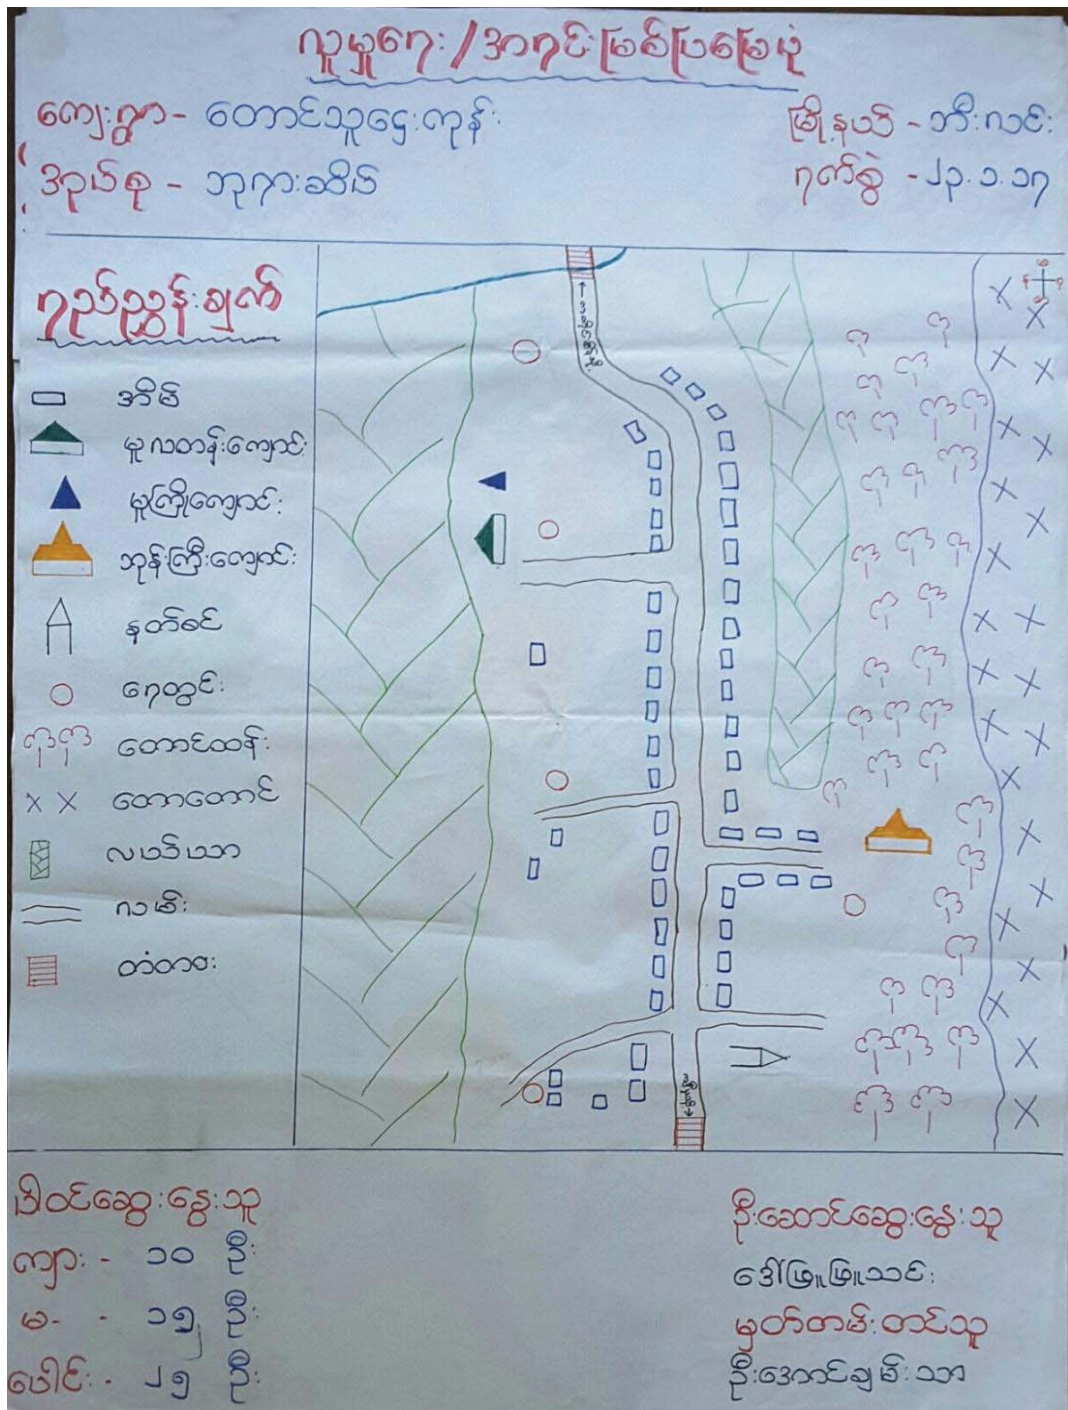 လူမှုရေး/အရင်းမြစ်ပြမြေပုံ
ကျေးရွာ - တောင်သူဌေးကုန်း
မြို့နယ် - ဘီးလင်း
အုပ်စု - ဘုရားဆိပ်
ရက်စွဲ - ၂၃.၁.၁၇
ရည်ညွှန်းချက်
အိမ်
မူလတန်းကျောင်း
မူကြိုကျောင်း
ဘုန်းကြီးကျောင်း
နတ်စင်
ရေတွင်း
တောင်ထန်း
တောတောင်
လယ်ယာ
လမ်း
တံတား
ပါဝင်ဆွေးနွေးသူ
ကျား - ၁၀ ဦး
မ - ၁၅ ဦး
ပေါင်း - ၂၅ ဦး
ဦးဆောင်ဆွေးနွေးသူ
ဒေါ်ဖြူဖြူသင်း
မှတ်တမ်းတင်သူ
ဦးအောင်ချမ်းသာ